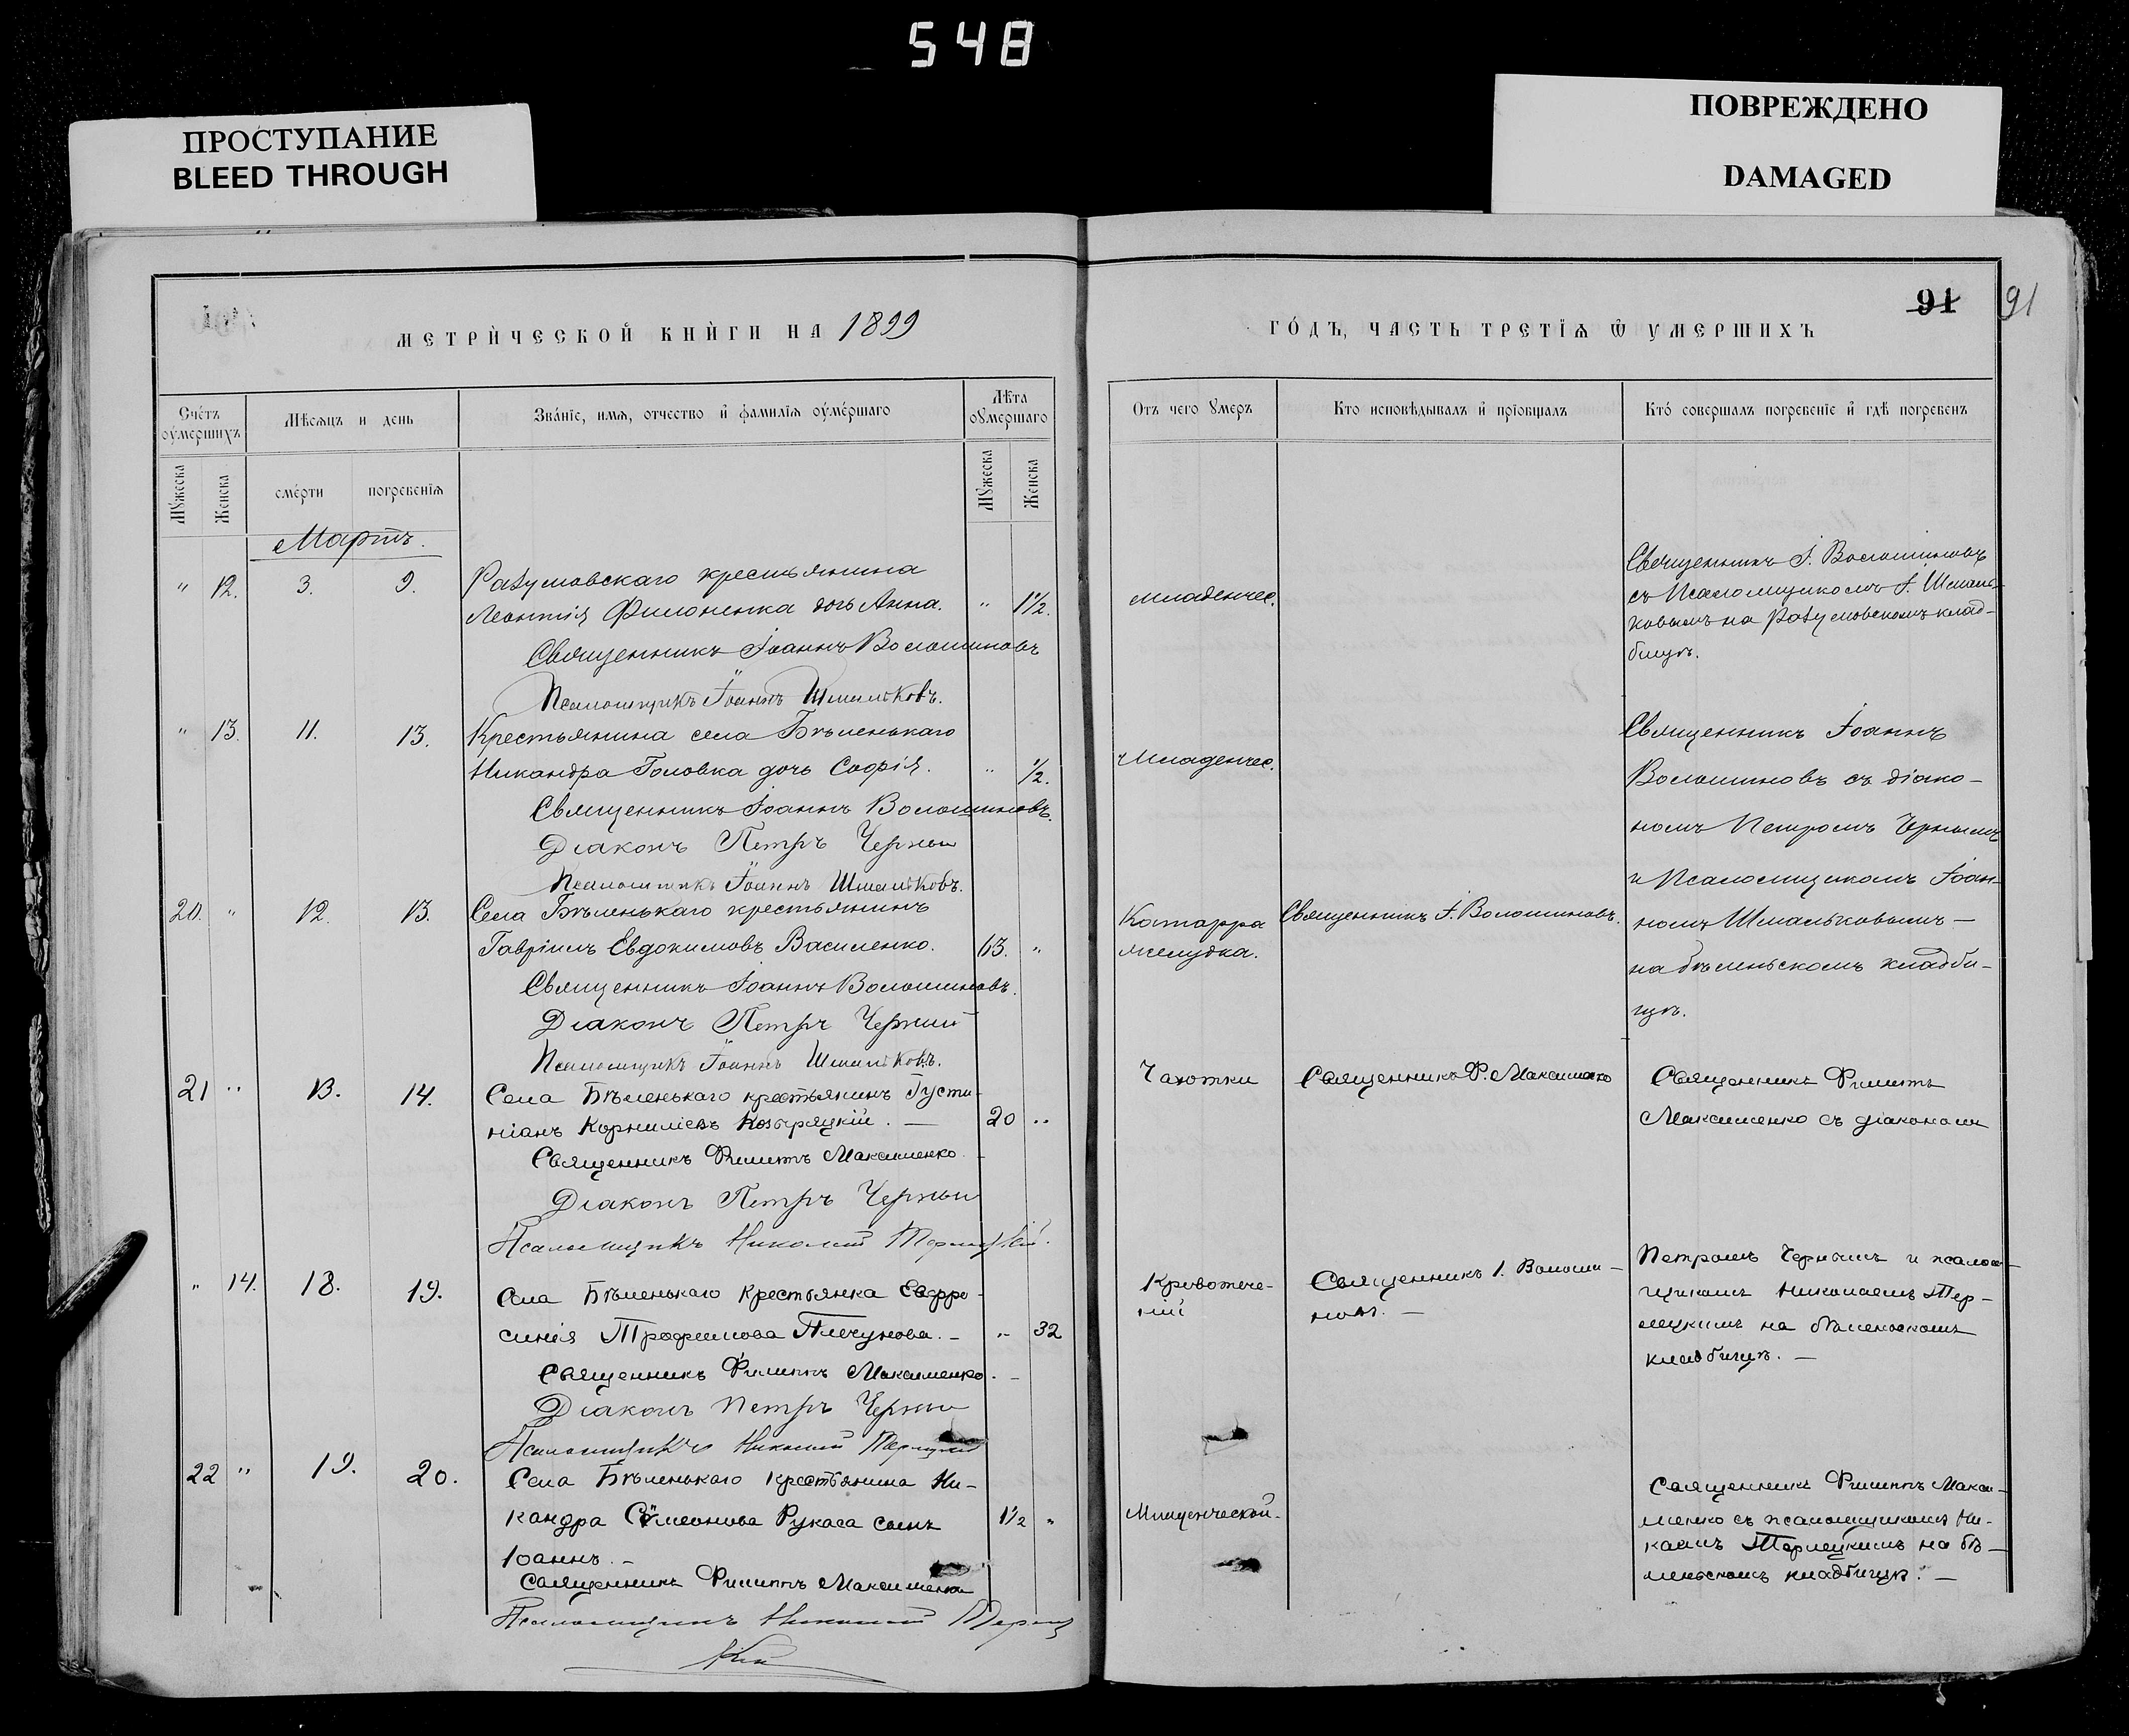 548
ПРОСТУПАНИЕ
BLEED THROUGH
ПОВРЕЖДЕНО
DAMAGED
МЕТРИ́ЧЕСКОЙ КНИ́ГИ НА 1899
ГО́ДЪ, ЧАСТЬ ТРЕТЇѦ Ѿ УМЕРШИХЪ
91 91
Сче́тъ оу҆ме́ршихъ
Мѣсѧцъ и день
Зва́нїе, имѧ, отчество и҆ фамилїѧ оу҆ме́ршаго
Лѣта оу҆мершаго
Отъ чего ᲂумеръ
Кто исповѣдывалъ и҆ прїобщалъ
Кто́ совершалъ погребенїе и҆ гдѣ погребенъ
Мужеска
Женска
сме́рти
погребенїѧ
Мужеска
Женска
Мартъ.
" 12. 3. 9. Разумовскаго крестьянина
Леонтія Филоненка дочь Анна. " 1½.
Священникъ Іоаннъ Волошиновъ
Псаломщикъ Іоаннъ Шмальковъ.
младенчес.
Священникъ І. Волошиновъ
съ Псаломщикомъ І. Шмаль-
ковымъ на Разумовскомъ клад-
бищѣ.
" 13. 11. 13. Крестьянина села Бѣленькаго
Никандра Головка дочь Софія. " ½.
Священникъ Іоаннъ Волошиновъ.
Діаконъ Петръ Черный
Псаломщикъ Іоаннъ Шмальковъ.
Младенчес.
Священникъ Іоаннъ
Волошиновъ съ діако-
номъ Петромъ Чернымъ
и Псаломщикомъ Іоан-
номъ Шмальковымъ —
на бѣленьскомъ кладби-
щѣ.
20. " 12. 13. Села Бѣленькаго крестьянинъ
Гавріилъ Евдокимовъ Василенко. 63. "
Священникъ Іоаннъ Волошиновъ.
Діаконъ Петръ Черный
Псаломщикъ Іоаннъ Шмальковъ.
Катарра
желудка.
Священникъ І. Волошиновъ.
21 " 13. 14. Села Бѣленькаго крестьянинъ Густи-
ніанъ Корниліевъ Козыряцкій. — 20 "
Священникъ Филиппъ Максименко
Діаконъ Петръ Черный
Псаломщикъ Николай Терлецкій.
Чахотки
Священникъ Ф. Максименко
Священникъ Филиппъ
Максименко съ діакономъ
Петромъ Чернымъ и псалом-
щикомъ Николаемъ Тер-
лецкимъ на бѣленьскомъ
кладбищѣ. —
" 14. 18. 19. Села Бѣленькаго Крестьянка Евфро-
синія Трофимова Плечунова. — " 32
Священникъ Филиппъ Максименко. —
Діаконъ Петръ Черный
Псаломщикъ Николай Терлецкій
Кровотече-
ній
Священникъ І. Волоши-
новъ. —
22 " 19. 20. Села Бѣленькаго Крестьянина Ни-
кандра Симеонова Рукаса сынъ 1½ "
Іоаннъ. —
Священникъ Филиппъ Максименко
Псаломщикъ Николай Терлец
кій
Младенческой.
Священникъ Филиппъ Макси-
менко съ псаломщикомъ Ни-
каемъ Терлецкимъ на бѣ-
леньскомъ кладбищѣ. —